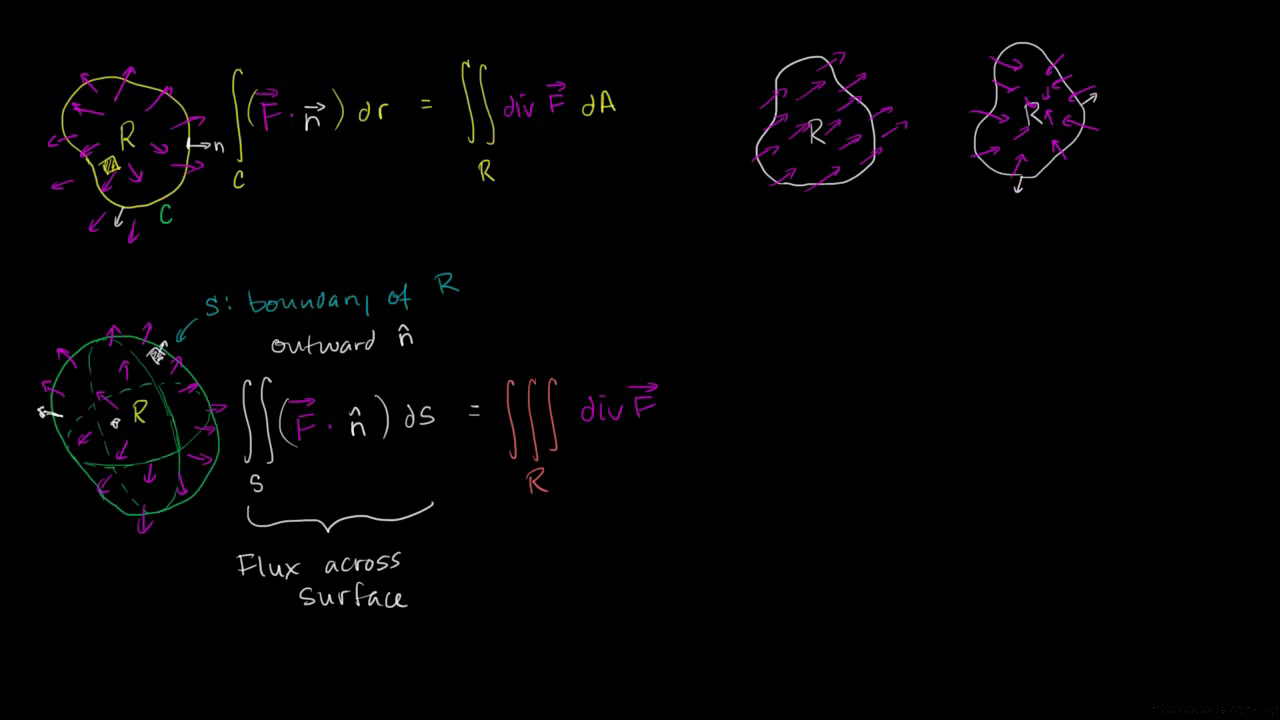 R n C
∫_C (F⃗ · n⃗) dr = ∬_R div F⃗ dA
R
R
S: boundary of R
outward n̂
R
∬_S (F⃗ · n̂) dS = ∭_R div F⃗
Flux across
surface